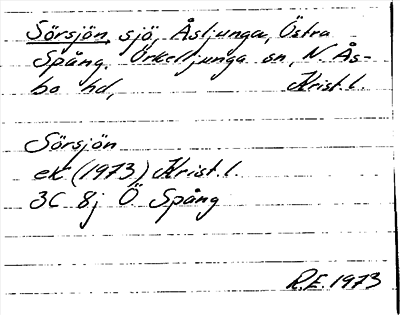 Sörsjön, sjö, Åsljunga, Östra
Spång. Örkelljunga sn, N. Ås-
bo hd, Krist. l.
Sörsjön
ek (1973) Krist. l.
3C 8j Ö Spång
R.E. 1973